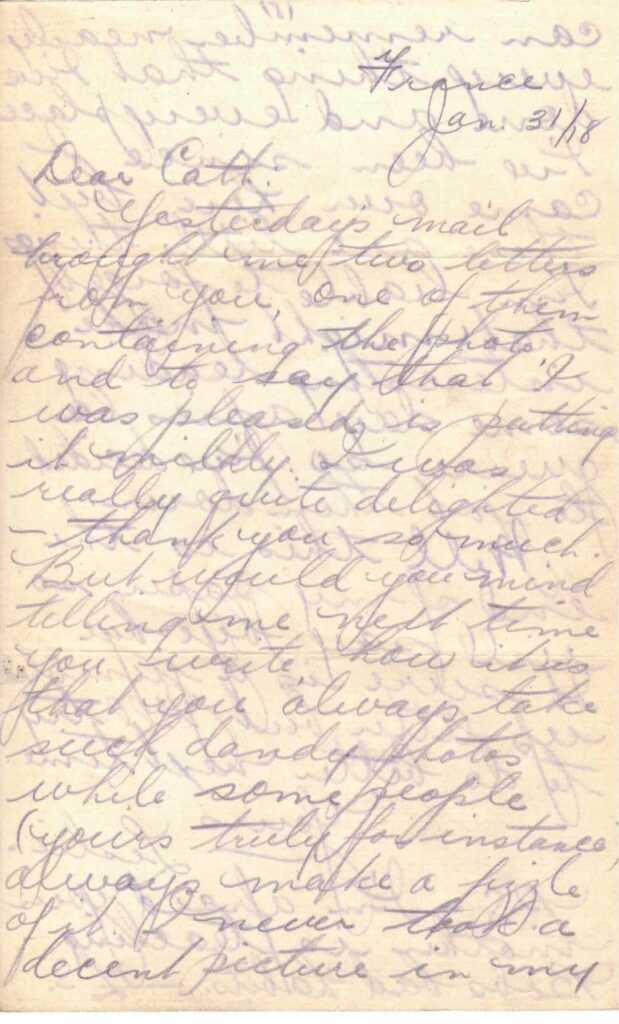 France
Jan. 31/18
Dear Cath:
Yesterdays mail
brought me two letters
from you, one of them
containing the photo
and to say that I
was pleased is putting
it mildly. I was
really quite delighted
- thank you so much.
But would you mind
telling me next time
you write how it is
that you always take
such dandy photos
while some people
(yours truly for instance)
always make a fizzle
of it. I never took a
decent picture in my